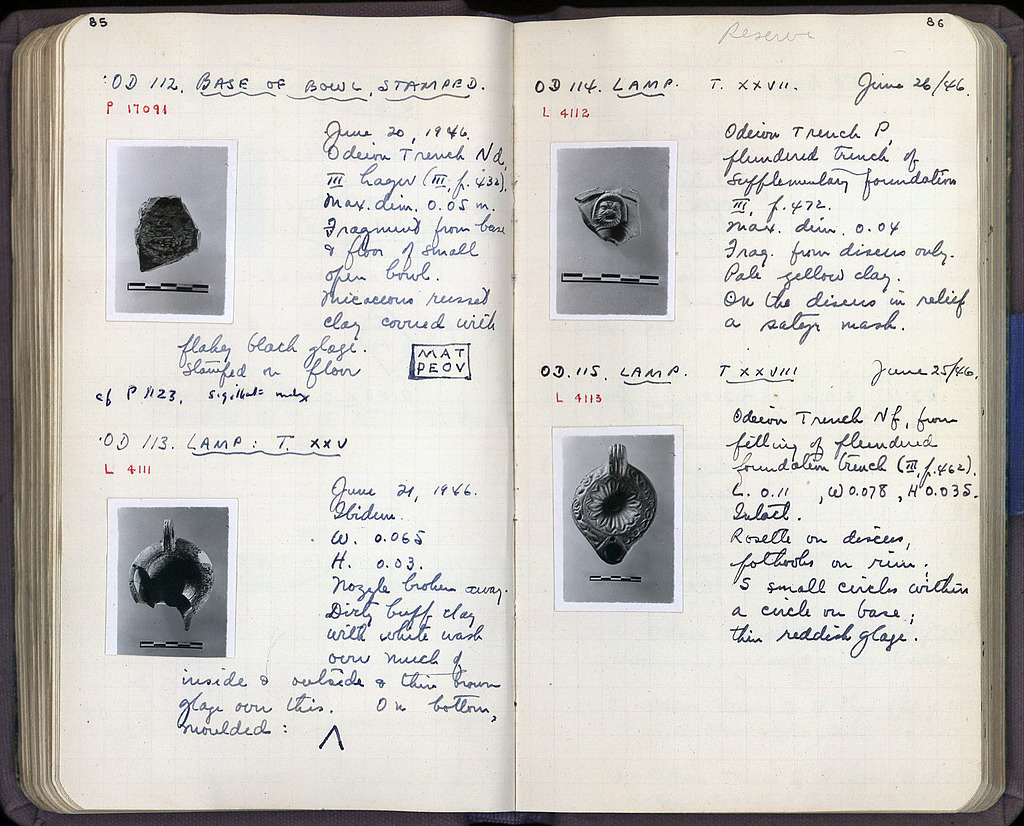 85
OD 112. BASE OF BOWL, STAMPED.
P 17091
June 20, 1946.
Odeion Trench Nd,
III layer (III, p. 432).
Max. dim. 0.05 m.
Fragment from base
& floor of small
open bowl.
Micaceous reddish
clay covered with
flaky black glaze.
Stamped on floor
MAT
PEOV
cf P 1123. Sigillata index
OD 113. LAMP: T. XXV
L 4111
June 21, 1946.
Ibidem.
W. 0.065
H. 0.03.
Nozzle broken away.
Dirty buff clay
with white wash
over much of
inside & outside & thin brown
glaze over this. On bottom,
moulded: Λ
86
Reserve
OD 114. LAMP. T. XXVII. June 26/46.
L 4112
Odeion Trench P,
plundered trench of
supplementary foundation
III, p. 472.
Max. dim. 0.04
Frag. from discus only.
Pale yellow clay.
On the discus in relief
a satyr mask.
OD. 115. LAMP. T XXVIII June 25/46.
L 4113
Odeion Trench Nf, from
filling of plundered
foundation trench (III, p. 462).
L. 0.11 , W 0.078 , H 0.035.
Intact.
Rosette on discus,
pothooks on rim;
5 small circles within
a circle on base;
thin reddish glaze.